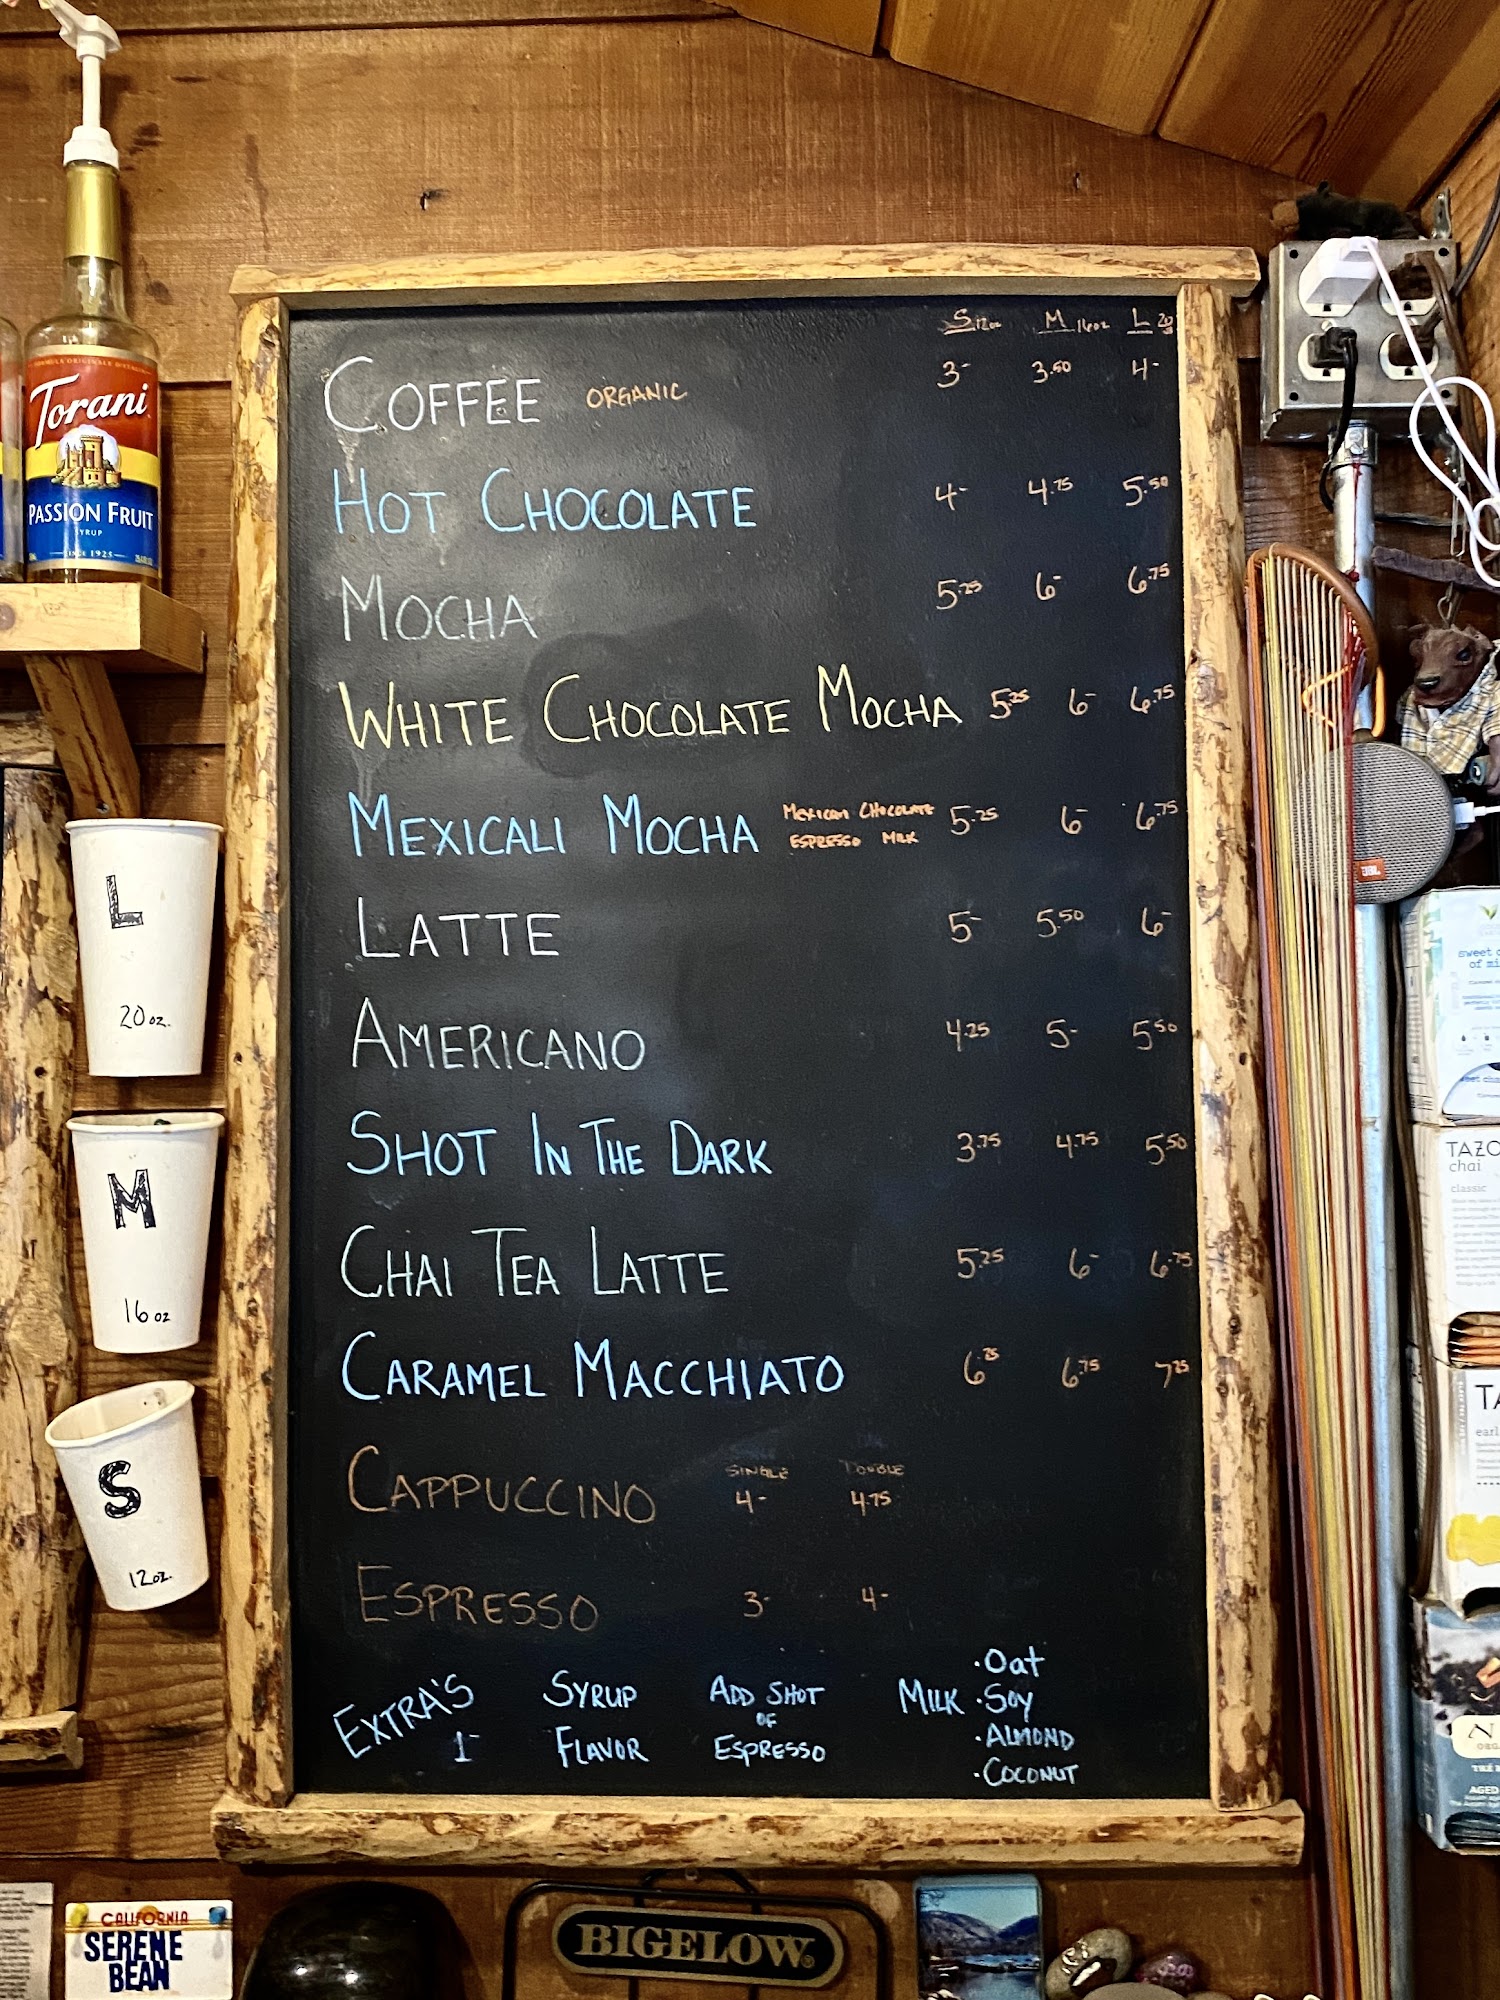 S 12oz M 16oz L 20
COFFEE ORGANIC 3- 3.50 4-
HOT CHOCOLATE 4- 4.75 5.50
MOCHA 5.25 6- 6.75
WHITE CHOCOLATE MOCHA 5.25 6- 6.75
MEXICALI MOCHA MEXICAN CHOCOLATE 5.25 6- 6.75
ESPRESSO MILK
LATTE 5- 5.50 6-
AMERICANO 4.25 5- 5.50
SHOT IN THE DARK 3.75 4.75 5.50
CHAI TEA LATTE 5.25 6- 6.75
CARAMEL MACCHIATO 6.25 6.75 7.25
SINGLE DOUBLE
CAPPUCCINO 4- 4.75
ESPRESSO 3- 4-
EXTRA'S 1-
SYRUP
FLAVOR
ADD SHOT
OF
ESPRESSO
MILK
·Oat
·Soy
·ALMOND
·COCONUT
Torani
PASSION FRUIT
SYRUP
SINCE 1925
L
20 oz.
M
16 oz
S
12oz.
CALIFORNIA
SERENE
BEAN
BIGELOW
JBL
TAZO
chai
classic